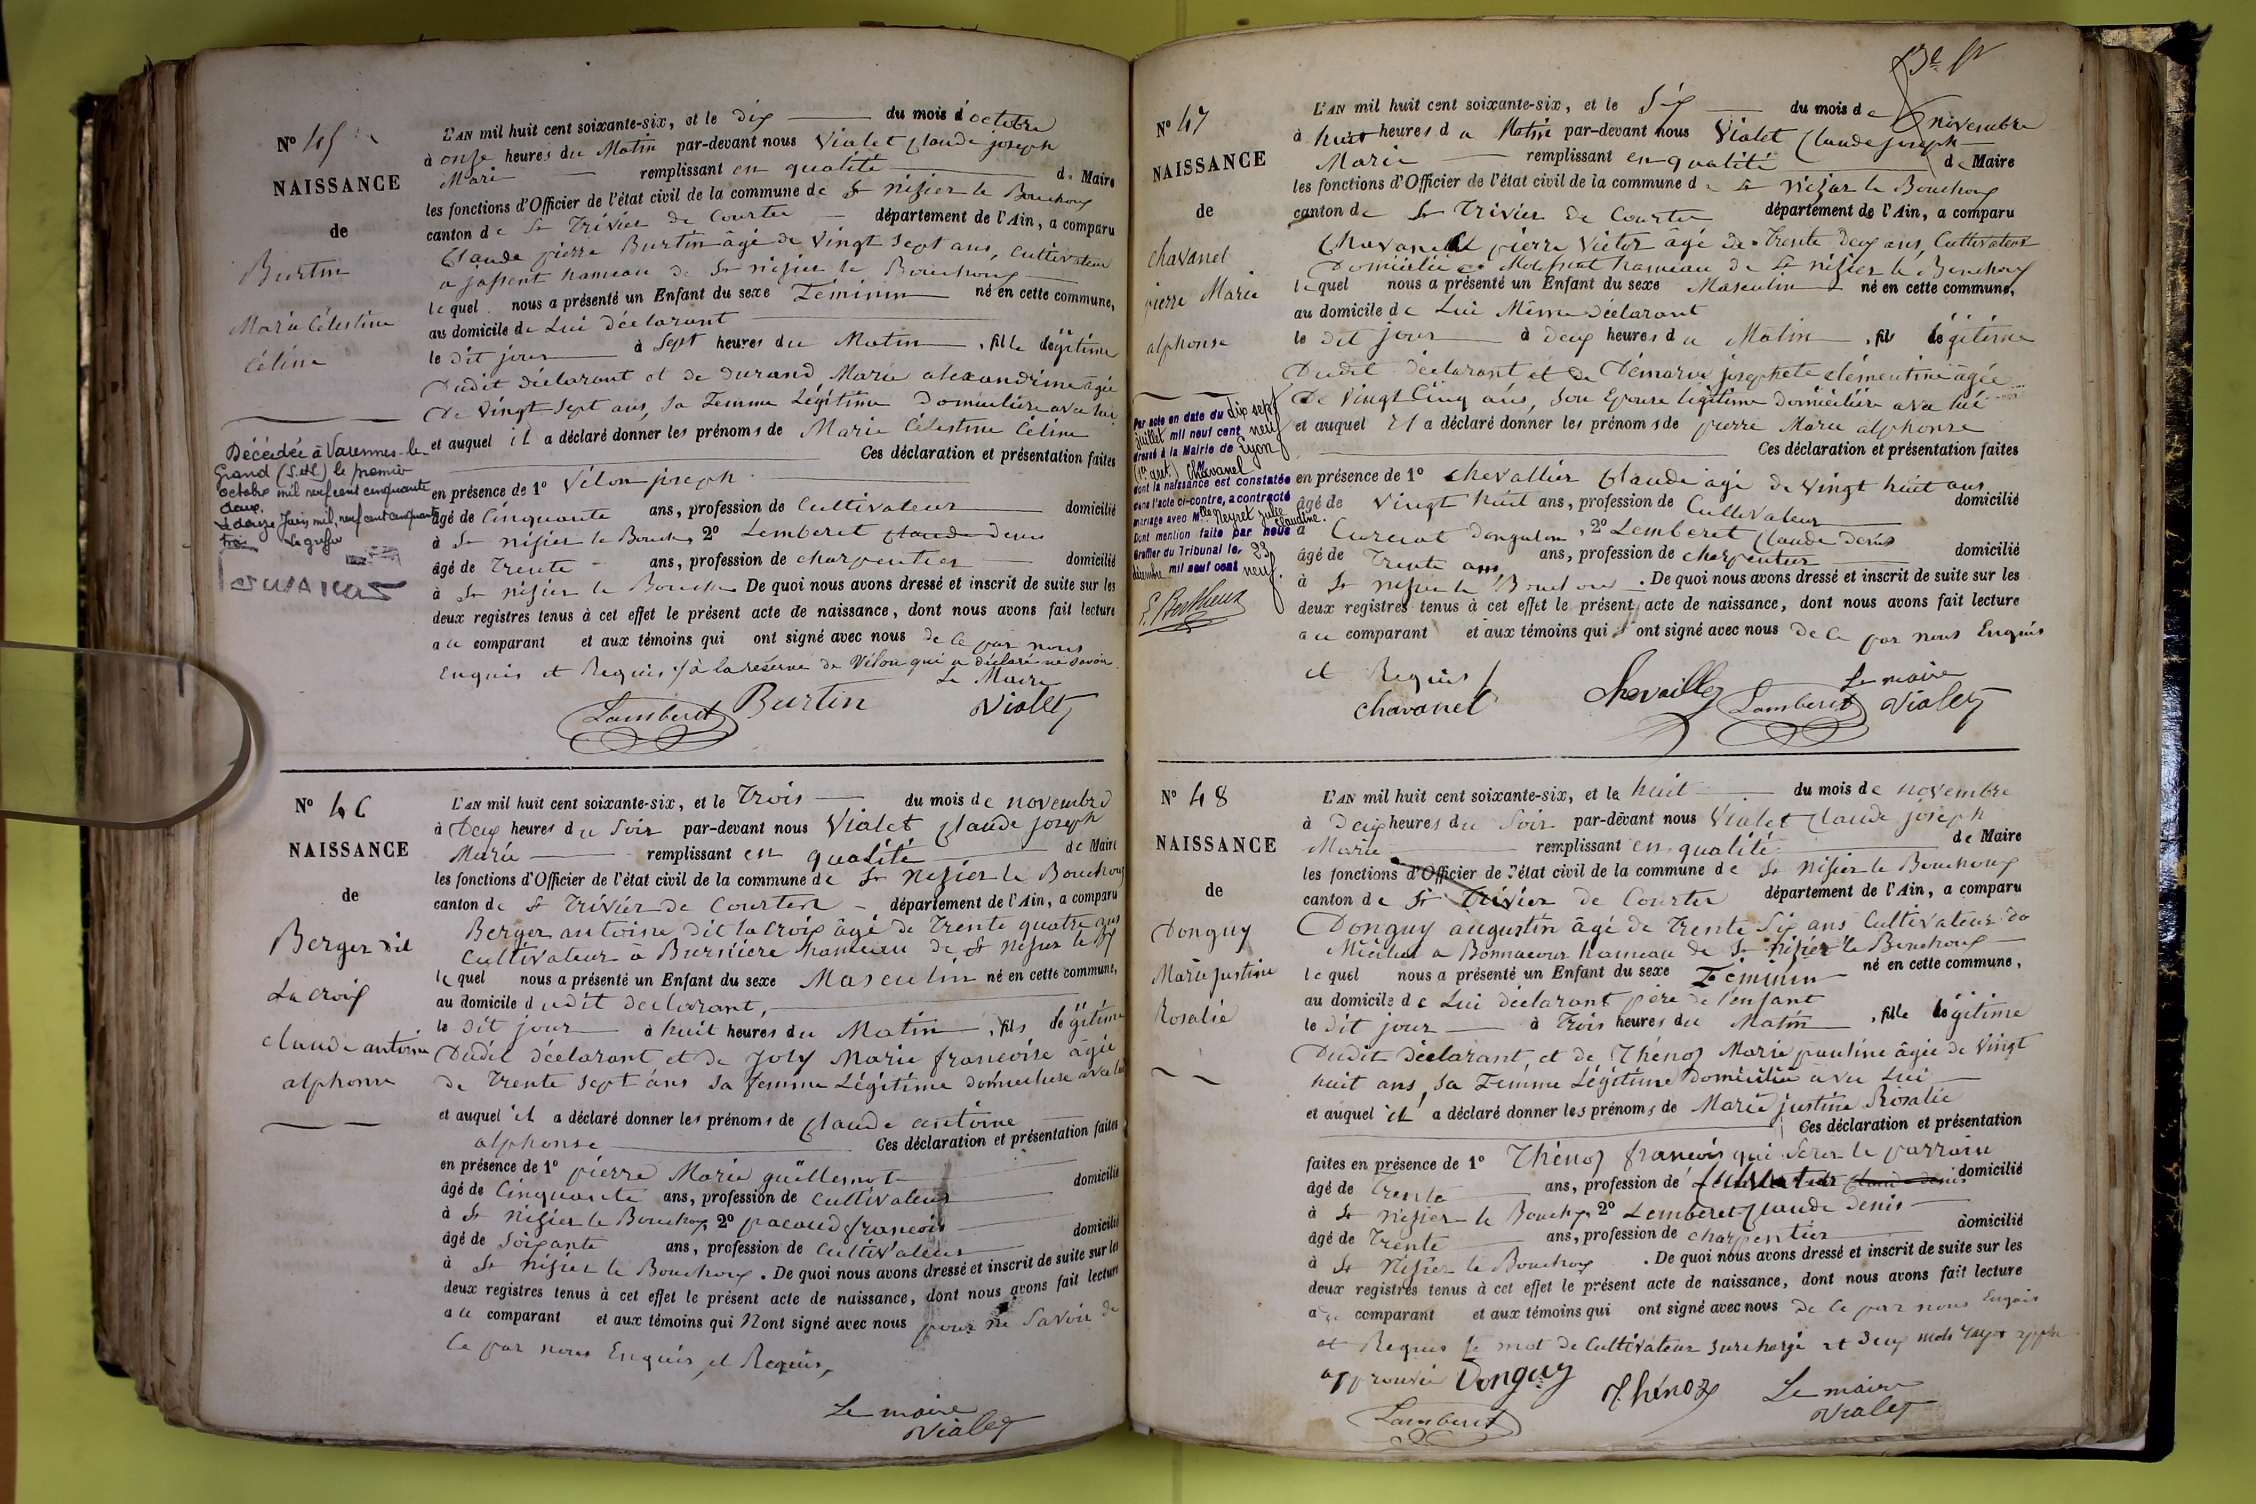 N° 45
NAISSANCE
de
Burtin
Marie Célestine
Céline
Décédée à Varennes-le-
Grand (S.&L) le premier
octobre mil neuf cent cinquante
deux.
Le douze Juin mil neuf cent cinquante
trois Le greffier
L'AN mil huit cent soixante-six, et le dix du mois d'octobre
à onze heures du Matin par-devant nous Vialet Claude joseph
Marie remplissant en qualité de Maire
les fonctions d'Officier de l'état civil de la commune de St nizier le Bouchoux
canton de St Trivier de Courtes département de l'Ain, a comparu
Claude pierre Burtin âgé de Vingt Sept ans, cultivateur
a jassent hameau de St nizier le Bouchoux
lequel nous a présenté un Enfant du sexe Féminin né en cette commune,
au domicile de Lui déclarant
le dit jour à Sept heures du Matin, fille légitime
Dudit déclarant et de Durand Marie alexandrine âgée
De Vingt Sept ans, Sa Femme Légitime Domiciliée avec lui
et auquel il a déclaré donner les prénoms de Marie Célestine Céline
Ces déclaration et présentation faites
en présence de 1° Vélon joseph
âgé de Cinquante ans, profession de Cultivateur domicilié
à St nizier le Bouchx 2° Lemberet Claude denis
âgé de Trente ans, profession de charpentier domicilié
à St nizier le Bouch De quoi nous avons dressé et inscrit de suite sur les
deux registres tenus à cet effet le présent acte de naissance, dont nous avons fait lecture
a ce comparant et aux témoins qui ont signé avec nous de ce par nous
Enquis et Requis à la réserve de Vélon qui a déclaré ne savoir.
Le Maire
Lamberet Burtin Vialet
N° 46
NAISSANCE
de
Berger dit
Lacroix
claude antoine
alphonse
L'AN mil huit cent soixante-six, et le Trois du mois de novembre
à Deux heures du Soir par-devant nous Vialet Claude joseph
Marie remplissant en qualité de Maire
les fonctions d'Officier de l'état civil de la commune de St Nizier le Bouchoux
canton de St Trivier de Courtes département de l'Ain, a comparu
Berger antoine dit lacroix âgé de Trente quatre ans
Cultivateur à Burniere hameau de St nizier le Bx
lequel nous a présenté un Enfant du sexe Masculin né en cette commune,
au domicile dudit declarant,
le dit jour à huit heures du Matin, fils légitime
Dudit déclarant et de Joly Marie francoise âgée
de Trente sept ans Sa femme Légitime domiciliée avec lui
et auquel il a déclaré donner les prénoms de Claude antoine
alphonse Ces déclaration et présentation faites
en présence de 1° pierre Marie guillemot
âgé de Cinquante ans, profession de Cultivateur domicilié
à St nizier le Bouchx 2° pacoud francois
âgé de Soixante ans, profession de Cultivateur domicilié
à St nizier le Bouchoux. De quoi nous avons dressé et inscrit de suite sur les
deux registres tenus à cet effet le présent acte de naissance, dont nous avons fait lecture
a ce comparant et aux témoins qui Nont signé avec nous pour ne Savoir de
Ce par nous Enquis, et Requis,
Le maire
Vialet
N° 47
NAISSANCE
de
Chavanel
pierre Marie
alphonse
Par acte en date du dix sept
juillet mil neuf cent neuf
dressé à la Mairie de Lyon
(1er arrt) Chavanel
dont la naissance est constatée
dans l'acte ci-contre, a contracté
mariage avec Mlle Neyret Julie
Claudine.
Dont mention faite par nous
Greffier du Tribunal le 23
décembre mil neuf cent neuf.
L'AN mil huit cent soixante-six, et le Six du mois de novembre
à huit heures du Matin par-devant nous Vialet Claude joseph
Marie remplissant en qualité de Maire
les fonctions d'Officier de l'état civil de la commune de St nizier le Bouchoux
canton de St Trivier de Courtes département de l'Ain, a comparu
Chavanel pierre Victor âgé de Trente deux ans, Cultivateur
Domicilié a hameau de St nizier le Bouchoux
lequel nous a présenté un Enfant du sexe Masculin né en cette commune,
au domicile de Lui Même déclarant
le dit jour à deux heures du Matin, fils légitime
Dudit déclarant et de josephete clémentine âgée
De Vingt Cinq ans, Son Epouse légitime domiciliée avec lui
et auquel il a déclaré donner les prénoms de pierre Marie alphonse
Ces déclaration et présentation faites
en présence de 1° Chevallier Claude âgé de Vingt huit ans
âgé de Vingt huit ans, profession de Cultivateur domicilié
a Curciat dongalon, 2° Lemberet Claude denis
âgé de Trente ans ans, profession de charpentier domicilié
à St nizier le Bouchoux. De quoi nous avons dressé et inscrit de suite sur les
deux registres tenus à cet effet le présent acte de naissance, dont nous avons fait lecture
a ce comparant et aux témoins qui ont signé avec nous de Ce par nous Enquis
et Requis
Le maire
Chavanel Lamberet Vialet
N° 48
NAISSANCE
de
Donguy
Marie justine
Rosalie
L'AN mil huit cent soixante-six, et le huit du mois de novembre
à Deux heures du Soir par-devant nous Vialet Claude joseph
Marie remplissant en qualité de Maire
les fonctions d'Officier de l'état civil de la commune de St nizier le Bouchoux
canton de St Trivier de Courtes département de l'Ain, a comparu
Donguy augustin âgé de Trente Six ans Cultivateur do
Micilié a Bonnacour hameau de St nizier le Bouchoux
lequel nous a présenté un Enfant du sexe Féminin né en cette commune,
au domicile de Lui déclarant père de l'enfant
le dit jour à Trois heures du Matin, fille légitime
Dudit déclarant et de Thénoz Marie pauline âgée de Vingt
huit ans, Sa Femme Légitime Domiciliée avec Lui
et auquel il a déclaré donner les prénoms de Marie justine Rosalie
Ces déclaration et présentation
faites en présence de 1° Thénoz francois qui Sera le parrain
âgé de Trente ans, profession de Cultivateur domicilié
à St nizier le Bouchx 2° Lemberet Claude denis
âgé de Trente ans, profession de charpentier domicilié
à St Nizier le Bouchoux. De quoi nous avons dressé et inscrit de suite sur les
deux registres tenus à cet effet le présent acte de naissance, dont nous avons fait lecture
a ce comparant et aux témoins qui ont signé avec nous de Ce par nous Enquis
et Requis le mot de Cultivateur surchargé et deux mots rayés
approuvé Donguy Thénoz Le maire
Lamberet Vialet